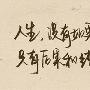 人生，没有如果
只有后果和结